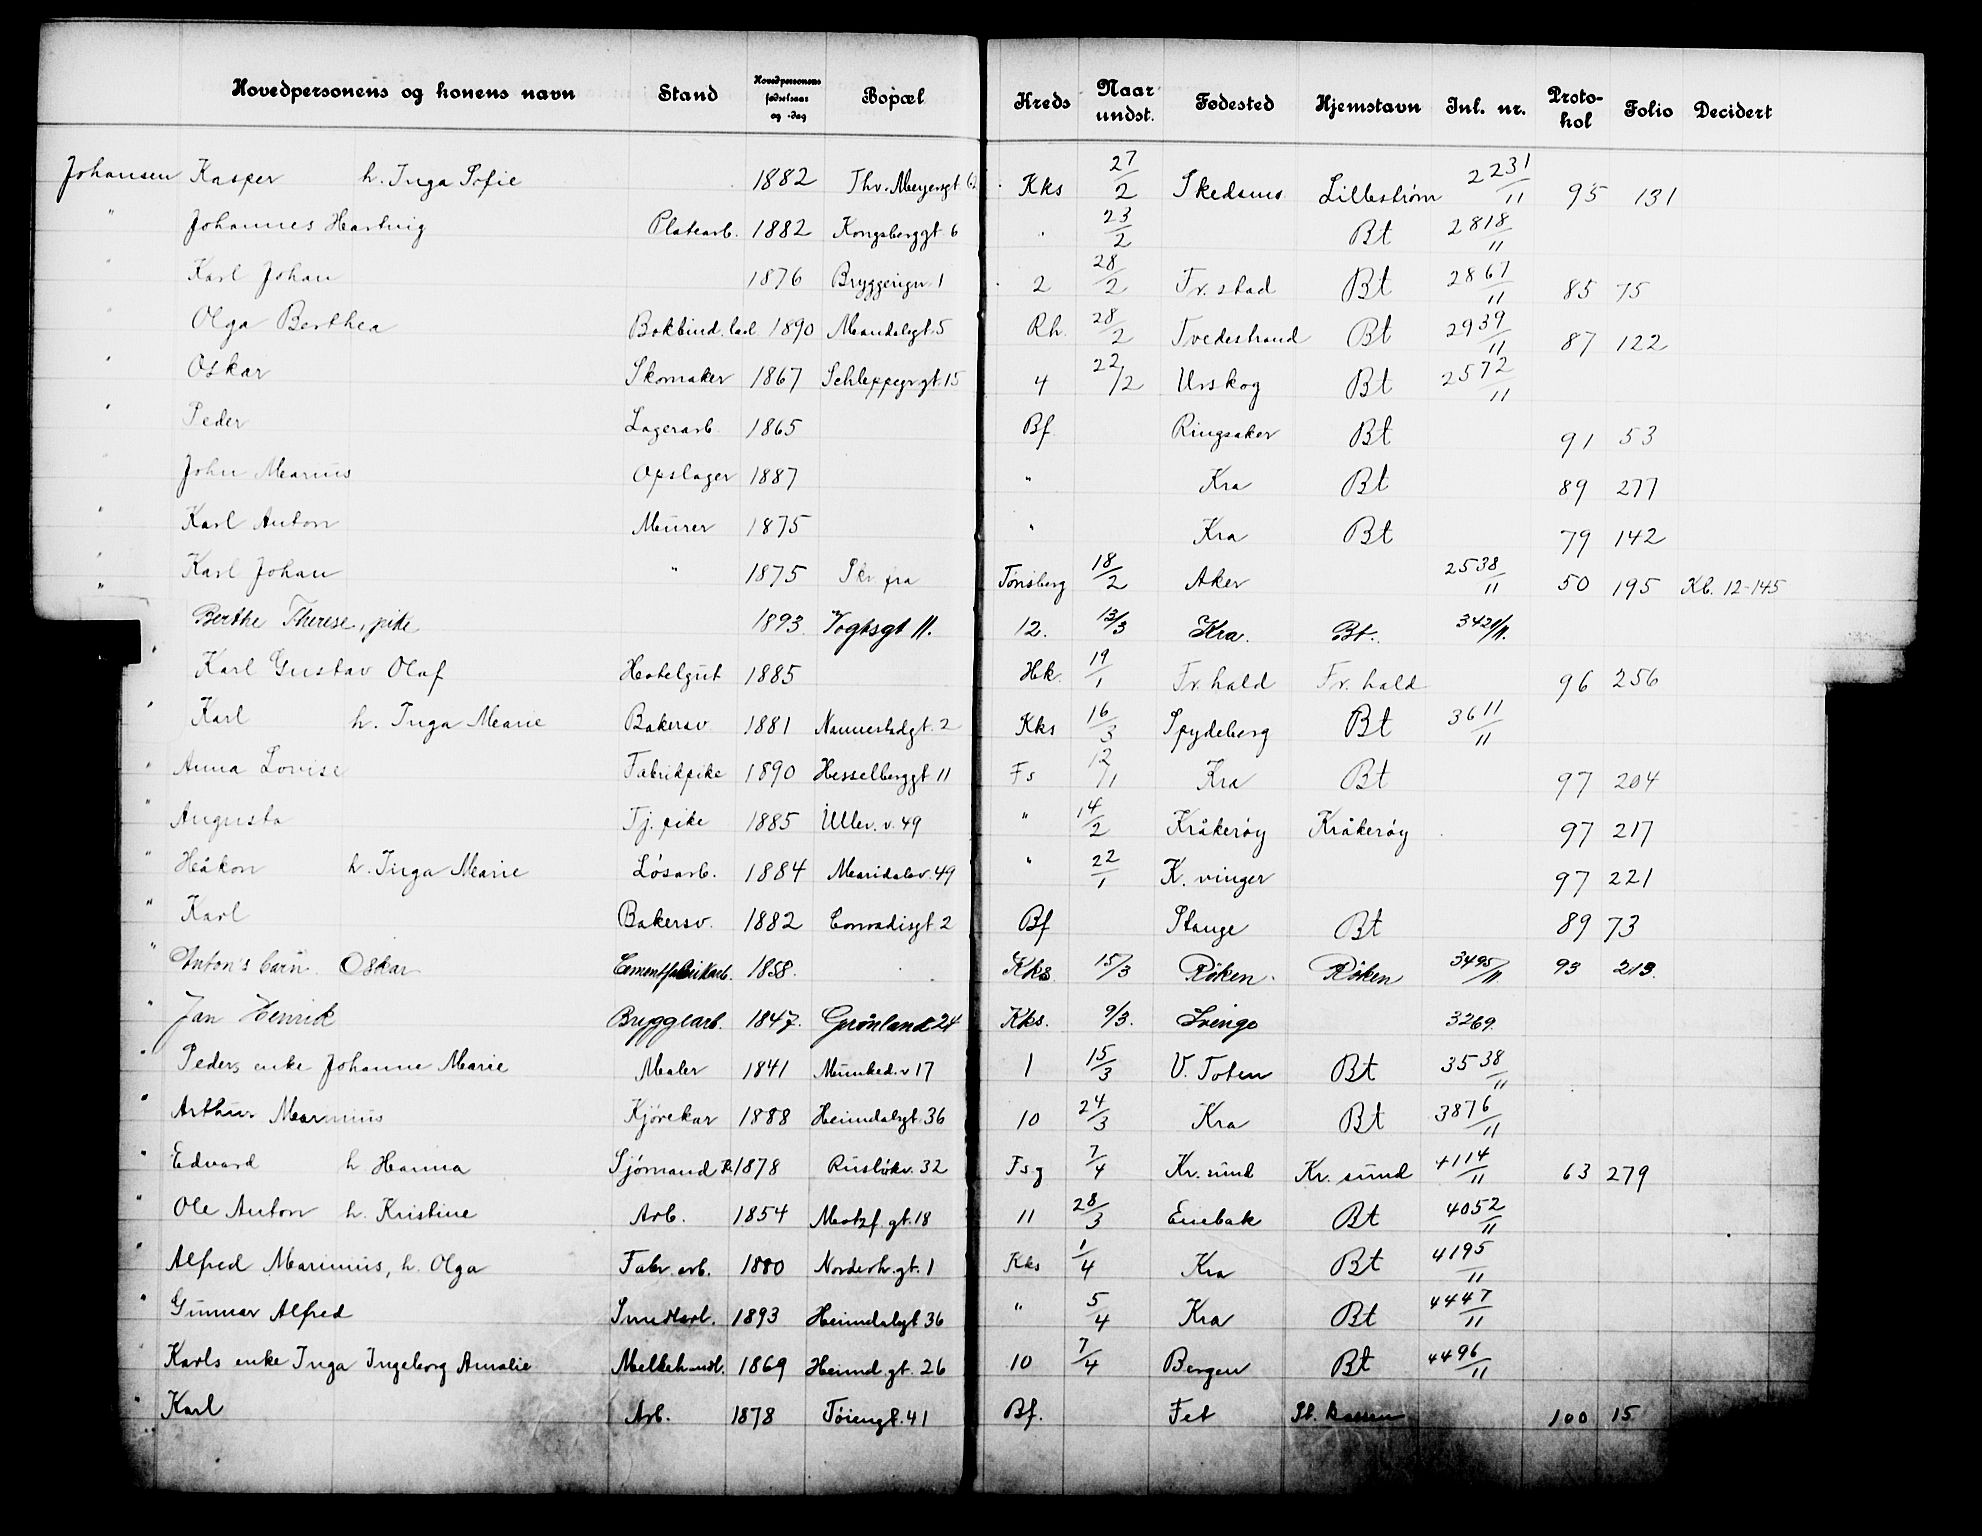 Hovedpersonens og konens navn Stand Hovedpersonens fødselsaar og -dag Bopæl Kreds Naar undst. Fødested Hjemstavn Inl. nr. Protokol Folio Decidert
Johansen Kasper h. Inga Sofie 1882 Thv. Meyersgt Kks 27/2 Skedsmo Lillestrøm 2231/11 95 131
" Johannes Hartvig Platearb. 1882 Kongsberggt 6 " 23/2 Bt 2818/11
" Karl Johan 1876 Bryggerign. 1 2 28/2 Fr. stad Bt 2867/11 85 75
" Olga Berthea Bokbind. 1890 Mandalsgt. 5 Rh. 28/2 Tvedestrand Bt 2939/11 87 122
" Oskar Skomaker 1867 Schleppegrgt. 15 4 22/2 Urskog Bt 2572/11
" Peder Lagerarb. 1865 Bf. Ringsaker Bt 91 53
John Marius Opslager 1887 " Kra Bt 89 277
" Karl Anton Murer 1875 " Kra Bt 79 142
" Karl Johan " 1875 Skr. fra Tønsberg 18/2 Aker 2538/11 50 195 Kb. 12-145
" Berthe Therese, pike 1893. Vogtsgt 11. 12. 13/3 Kra. Bt. 3421/11.
" Karl Gustav Olaf Hotelgut 1885 Hk. 19/1 Fr. hald Fr. hald 96 256
" Karl h. Inga Marie Bakersv 1881 Nannestadgt. 2 Kks 16/3 Spydeberg Bt 3611/11
" Anna Lovise Fabrikpike 1890 Hesselberggt 11 Fs 12/1 Kra Bt 97 204
" Augusta Tj. pike 1885 Ullev. v. 49 " 14/2 Kråkerøy Kråkerøy 97 217
" Håkon h. Inga Marie Løsarb. 1884 Maridalsv. 49 " 22/1 K. vinger 97 221
" Karl Bakersv. 1882 Conradisgt 2 Bf Stange Bt 89 73
" Anton's barn Oskar Cementfabrikarb. 1858. Kks. 15/3 Røken. Røken 3495/11. 93 213.
" Jan Henrik Bryggearb. 1847. Grønland 24 Kks. 9/3. Sverige 3269.
" Peders enke Johanne Marie Maler 1841 Munked. v 17 1 15/3 V. Toten Bt 3538/11
" Arthur Marinius Kjørekar 1888 Heimdalsgt. 36 10 24/3 Kra Bt 3876/11
" Edvard h. Hanna Sjømand 1878 Rusløkv. 32 Fsg 7/4 Kr. sund Kr. sund 4114/11 63 279
" Ole Anton h. Kristine Arb. 1854 Motzf. gt. 18 11 28/3 Enebak Bt 4052/11
" Alfred Marinius, h. Olga Fabr. arb. 1880 Norderh. gt. 1 Kks 1/4 Kra Bt 4195/11
" Gunnar Alfred Smedarb. 1893 Heimdalsgt 36 " 5/4 Kra Bt 4447/11
Karls enke Inga Ingeborg Amalie Melkehandl. 1869 Heimd. gt. 26 10 7/4 Bergen Bt 4496/11
" Karl Arb. 1878 Tøiengt. 41 Bf. Fet 100 15